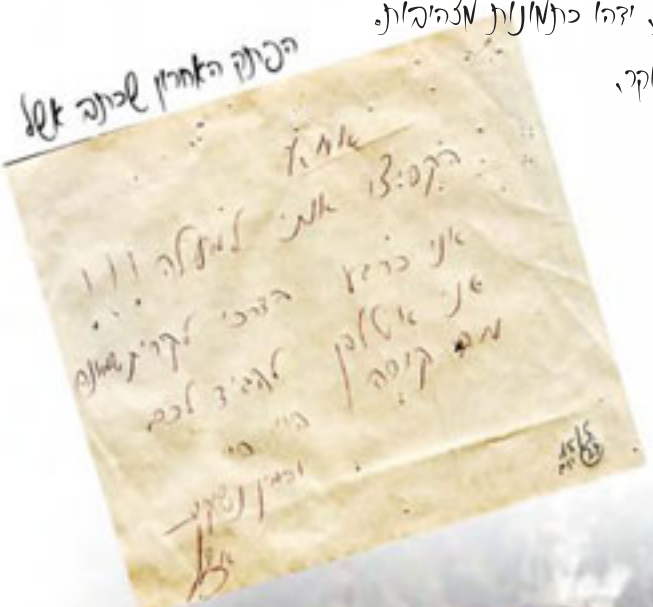 ידהו כתמונות מצהיבות.
הפתק האחרון שכתב אשל
הקפיצו אותי למעלה !!!
אני כרגע בדרכי לקרית שמונה
אני אטלפן להגיד לכם
מה קורה
היי היי
אשל